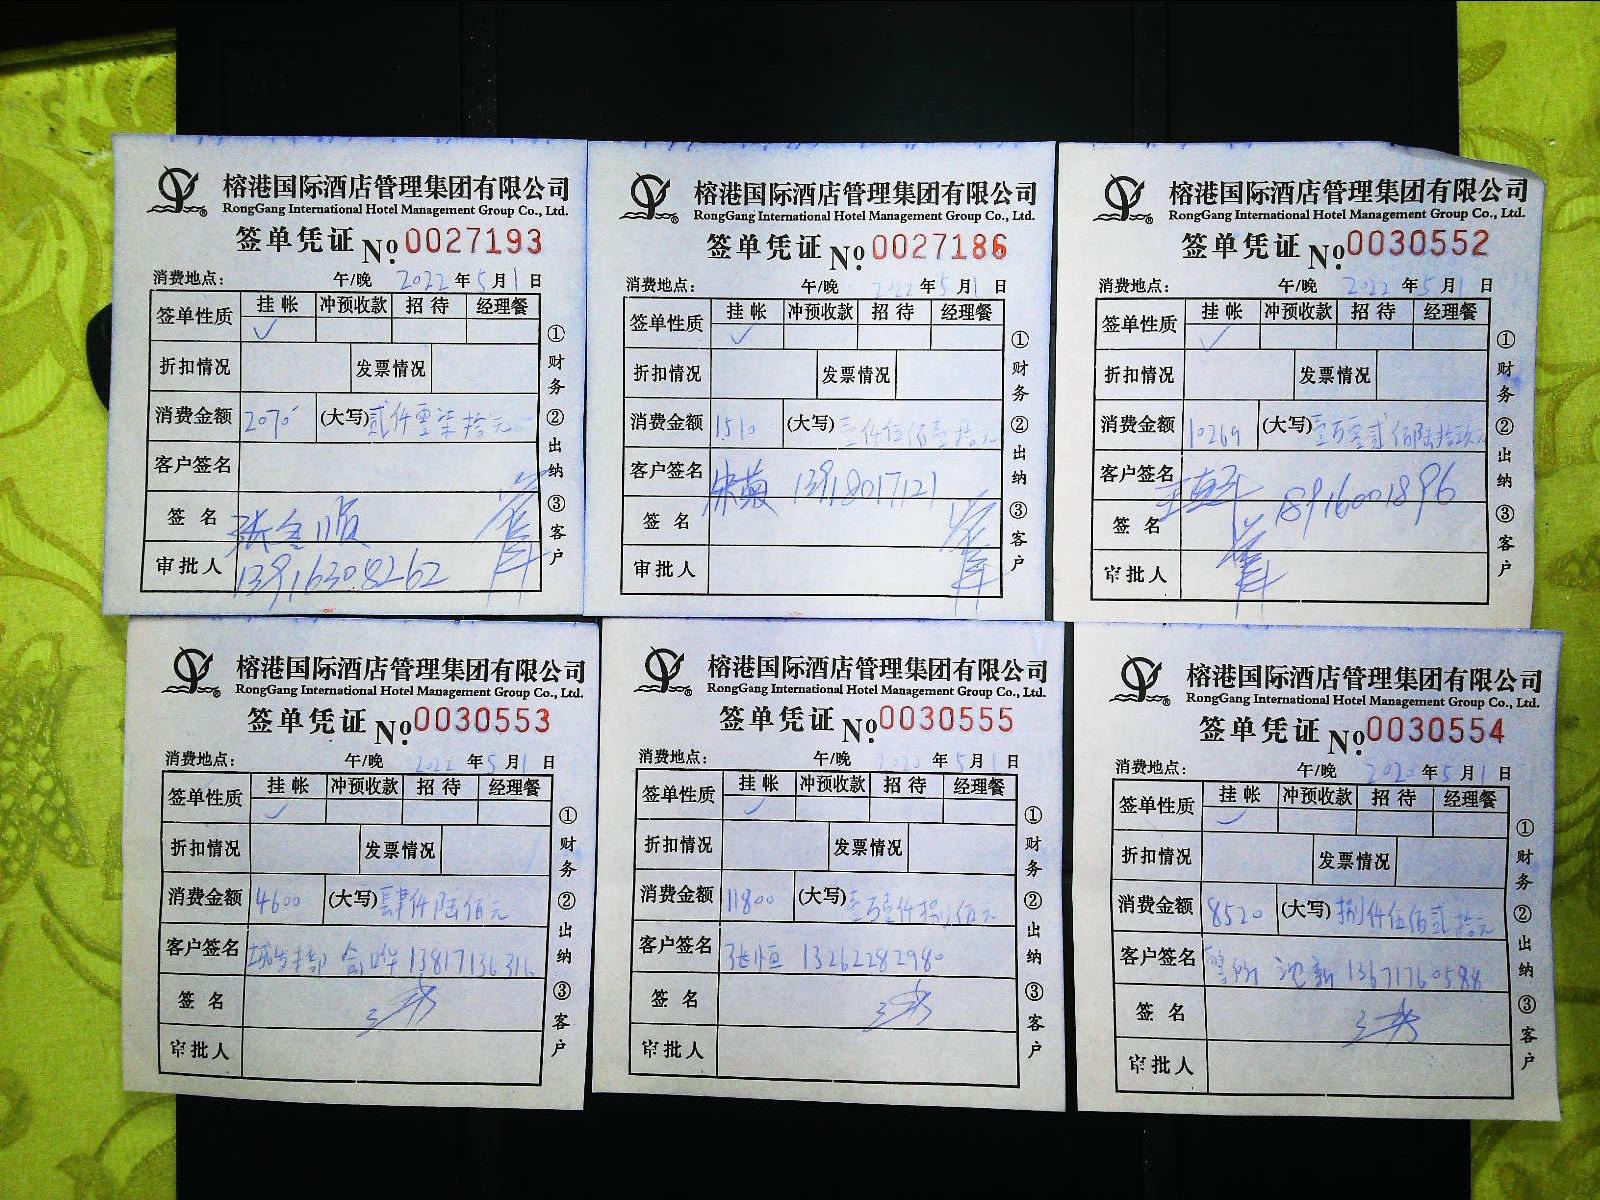 榕港国际酒店管理集团有限公司
RongGang International Hotel Management Group Co., Ltd.
签单凭证 No. 0027193
消费地点: 午/晚 2022年5月1日
签单性质 挂帐 冲预收款 招待 经理餐
✓
折扣情况 发票情况
消费金额 2070 (大写) 贰仟零柒拾元
客户签名
签名 张金顺
审批人 13916308262
①财务 ②出纳 ③客户
榕港国际酒店管理集团有限公司
RongGang International Hotel Management Group Co., Ltd.
签单凭证 No. 0027186
消费地点: 午/晚 2022年5月1日
签单性质 挂帐 冲预收款 招待 经理餐
✓
折扣情况 发票情况
消费金额 1510 (大写) 壹仟伍佰壹拾元
客户签名 朱菊 13918017121
签名
审批人
①财务 ②出纳 ③客户
榕港国际酒店管理集团有限公司
RongGang International Hotel Management Group Co., Ltd.
签单凭证 No. 0030552
消费地点: 午/晚 2022年5月1日
签单性质 挂帐 冲预收款 招待 经理餐
✓
折扣情况 发票情况
消费金额 10269 (大写) 壹万零贰佰陆拾玖元
客户签名 18916001896
签名
审批人
①财务 ②出纳 ③客户
榕港国际酒店管理集团有限公司
RongGang International Hotel Management Group Co., Ltd.
签单凭证 No. 0030553
消费地点: 午/晚 2022年5月1日
签单性质 挂帐 冲预收款 招待 经理餐
✓
折扣情况 发票情况
消费金额 4600 (大写) 肆仟陆佰元
客户签名 13817136316
签名
审批人
①财务 ②出纳 ③客户
榕港国际酒店管理集团有限公司
RongGang International Hotel Management Group Co., Ltd.
签单凭证 No. 0030555
消费地点: 午/晚 2020年5月1日
签单性质 挂帐 冲预收款 招待 经理餐
✓
折扣情况 发票情况
消费金额 11800 (大写) 壹万壹仟捌佰元
客户签名 张恒 13262282980
签名
审批人
①财务 ②出纳 ③客户
榕港国际酒店管理集团有限公司
RongGang International Hotel Management Group Co., Ltd.
签单凭证 No. 0030554
消费地点: 午/晚 2020年5月1日
签单性质 挂帐 冲预收款 招待 经理餐
✓
折扣情况 发票情况
消费金额 8520 (大写) 捌仟伍佰贰拾元
客户签名 沈新 13671760588
签名
审批人
①财务 ②出纳 ③客户